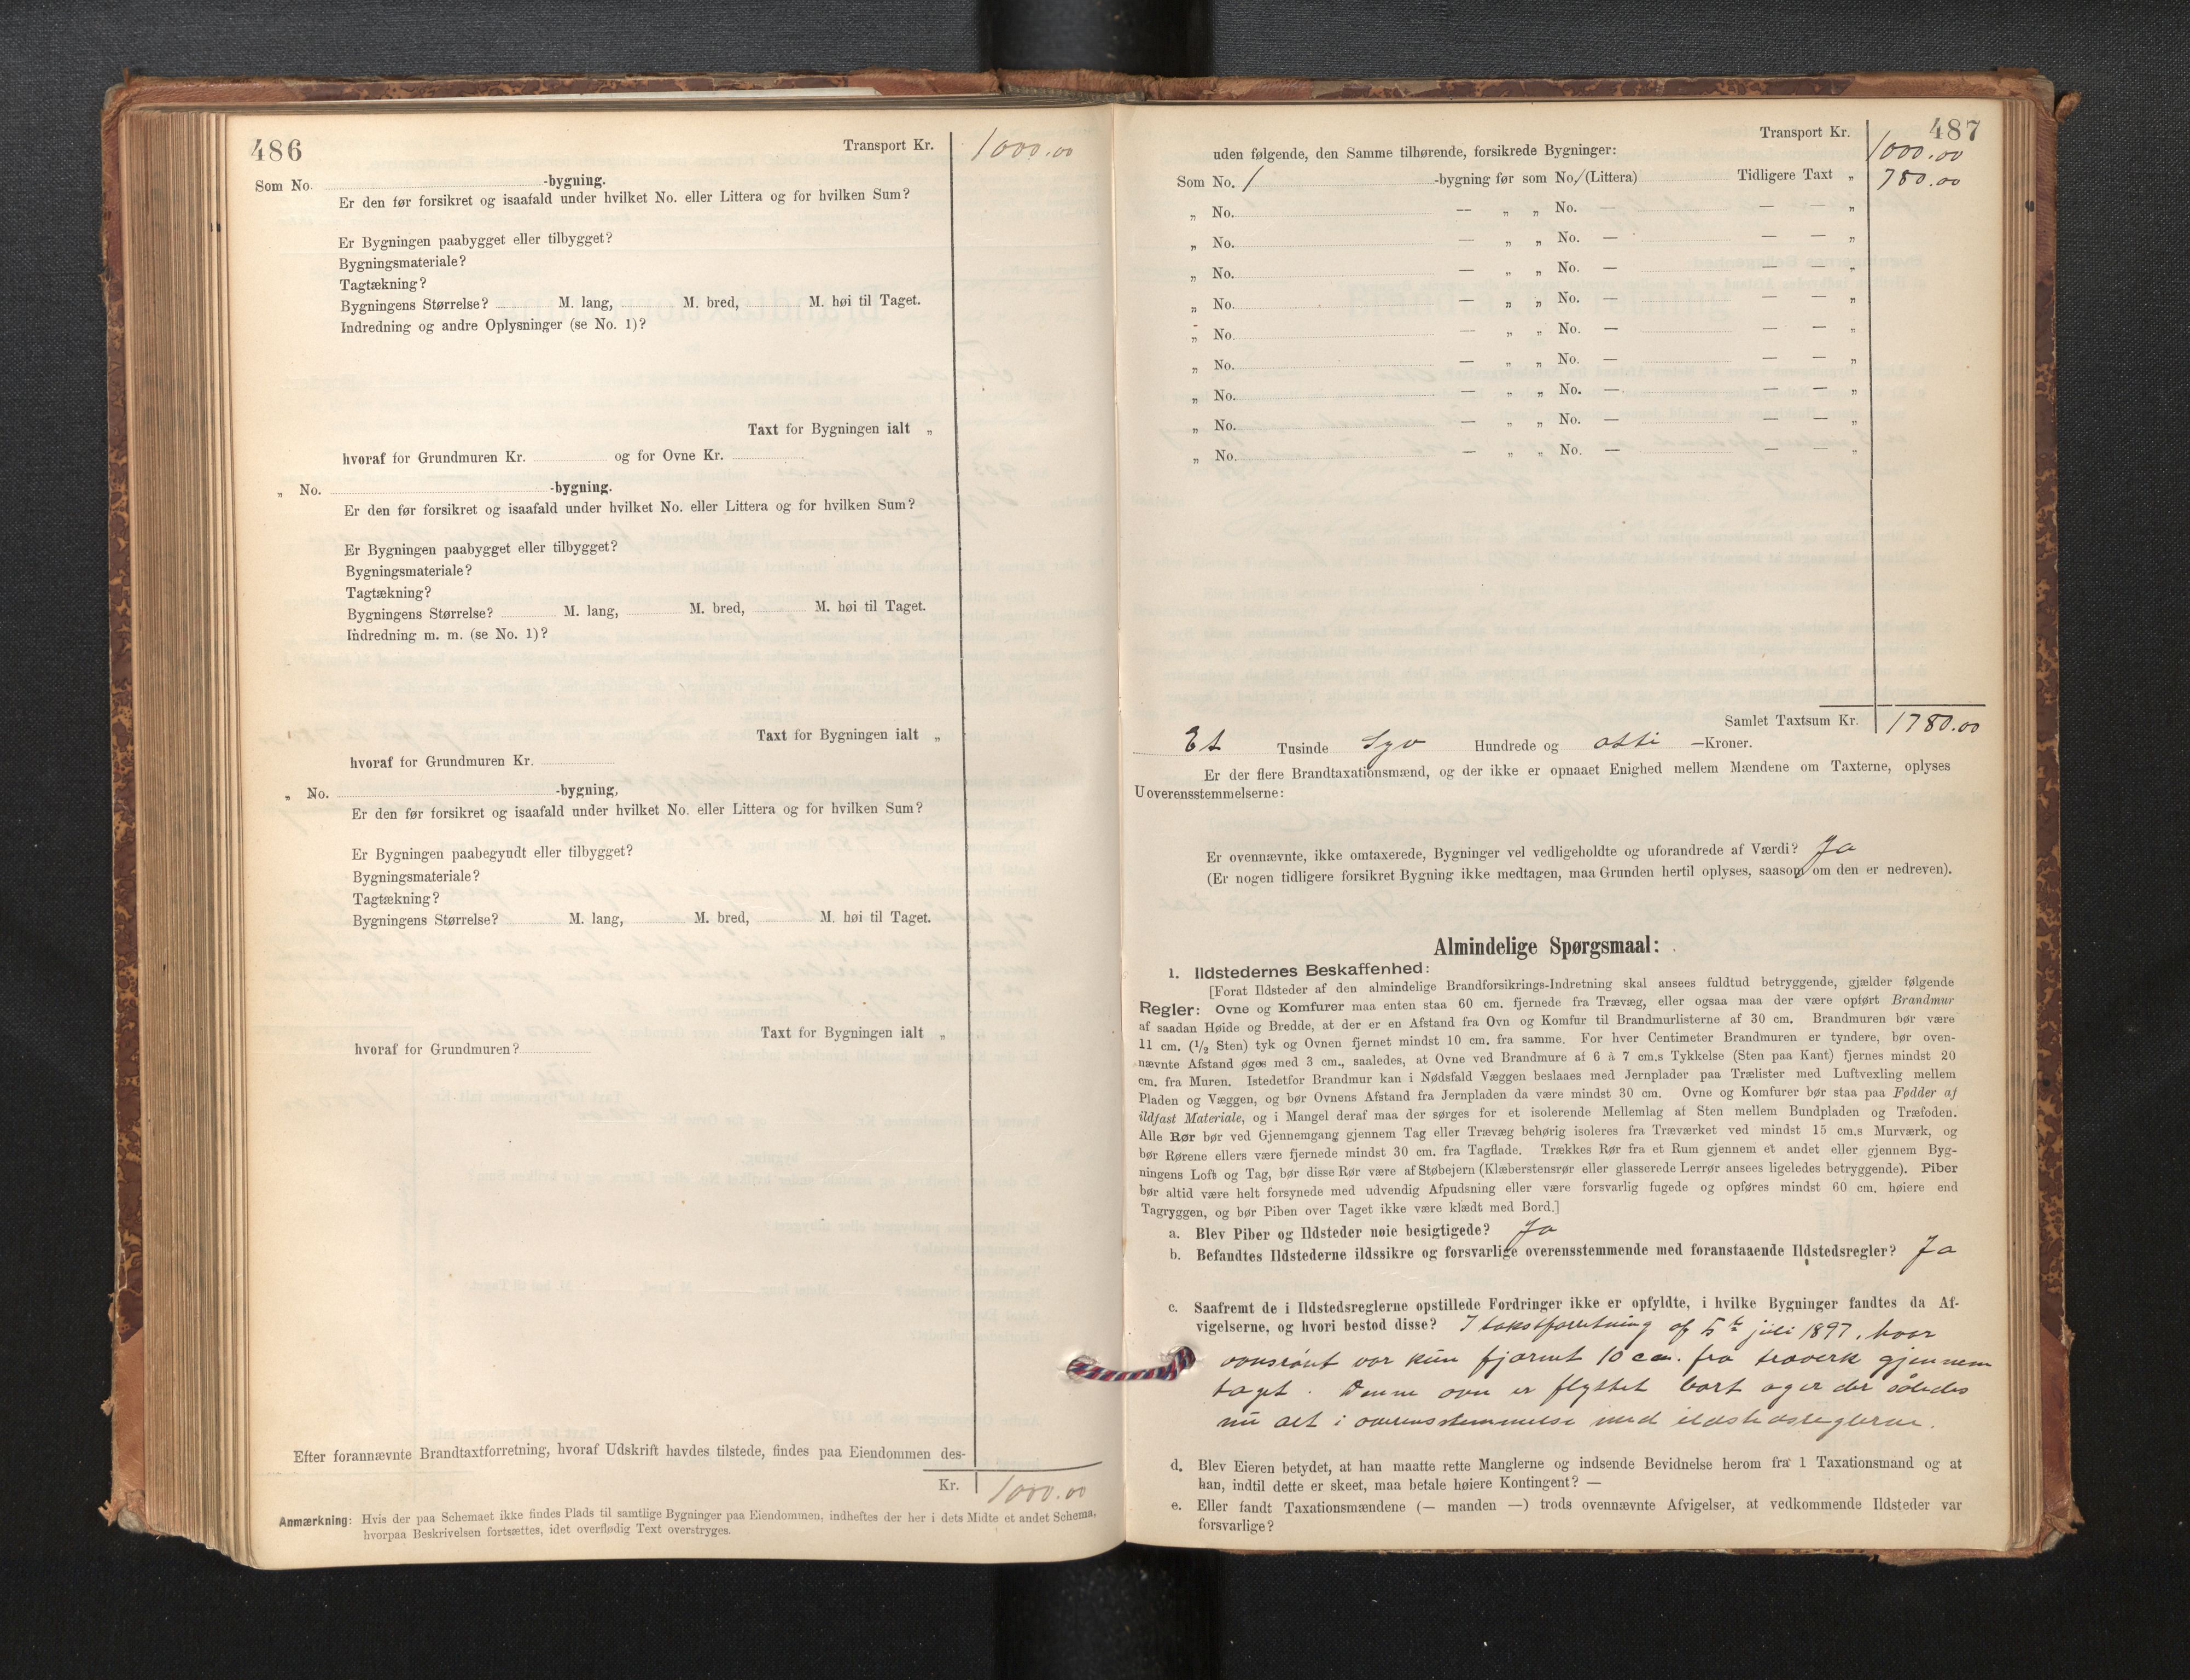 486
Transport Kr. 1000.00
Som No. -bygning.
Er den før forsikret og isaafald under hvilket No. eller Littera og for hvilken Sum?
Er Bygningen paabygget eller tilbygget?
Bygningsmateriale?
Tagtækning?
Bygningens Størrelse? M. lang, M. bred, M. høi til Taget.
Indredning og andre Oplysninger (se No. 1)?
Taxt for Bygningen ialt „
hvoraf for Grundmuren Kr. og for Ovne Kr.
„ No. -bygning.
Er den før forsikret og isaafald under hvilket No. eller Littera og for hvilken Sum?
Er Bygningen paabygget eller tilbygget?
Bygningsmateriale?
Tagtækning?
Bygningens Størrelse? M. lang, M. bred, M. høi til Taget.
Indredning m. m. (se No. 1)?
Taxt for Bygningen ialt „
hvoraf for Grundmuren Kr.
„ No. -bygning,
Er den før forsikret og isaafald under hvilket No. eller Littera og for hvilken Sum?
Er Bygningen paabegyudt eller tilbygget?
Bygningsmateriale?
Tagtækning?
Bygningens Størrelse? M. lang, M. bred, M. høi til Taget.
Taxt for Bygningen ialt „
hvoraf for Grundmuren?
Efter forannævnte Brandtaxtforretning, hvoraf Udskrift havdes tilstede, findes paa Eiendommen des-
Kr. 1000.00
Anmærkning: Hvis der paa Schemaet ikke findes Plads til samtlige Bygninger paa Eiendommen, indheftes der her i dets Midte et andet Schema,
hvorpaa Beskrivelsen fortsættes, idet overflødig Text overstryges.
487
Transport Kr. 1000.00
uden følgende, den Samme tilhørende, forsikrede Bygninger:
Som No. 1 -bygning før som No. (Littera) Tidligere Taxt „ 780.00
„ No. — „ „ No. — — — „
„ No. — „ „ No. — — — „
„ No. — „ „ No. — — — „
„ No. — „ „ No. — — — „
„ No. — „ „ No. — — — „
„ No. — „ „ No. — — — „
„ No. — „ „ No. — — — „
„ No. — „ „ No. — — — „
„ No. — „ „ No. — — — „
Samlet Taxtsum Kr. 1780.00
Et Tusinde Syv Hundrede og otti —Kroner.
Er der flere Brandtaxationsmænd, og der ikke er opnaaet Enighed mellem Mændene om Taxterne, oplyses
Uoverensstemmelserne:
Er ovennævnte, ikke omtaxerede, Bygninger vel vedligeholdte og uforandrede af Værdi? Ja
(Er nogen tidligere forsikret Bygning ikke medtagen, maa Grunden hertil oplyses, saasom om den er nedreven).
Almindelige Spørgsmaal:
1. Ildstedernes Beskaffenhed:
[Forat Ildsteder af den almindelige Brandforsikrings-Indretning skal ansees fuldtud betryggende, gjælder følgende
Regler: Ovne og Komfurer maa enten staa 60 cm. fjernede fra Trævæg, eller ogsaa maa der være opført Brandmur
af saadan Høide og Bredde, at der er en Afstand fra Ovn og Komfur til Brandmurlisterne af 30 cm. Brandmuren bør være
11 cm. (1/2 Sten) tyk og Ovnen fjernet mindst 10 cm. fra samme. For hver Centimeter Brandmuren er tyndere, bør oven-
nævnte Afstand øges med 3 cm., saaledes, at Ovne ved Brandmure af 6 à 7 cm.s Tykkelse (Sten paa Kant) fjernes mindst 20
cm. fra Muren. Istedetfor Brandmur kan i Nødsfald Væggen beslaaes med Jernplader paa Trælister med Luftvexling mellem
Pladen og Væggen, og bør Ovnens Afstand fra Jernpladen da være mindst 30 cm. Ovne og Komfurer bør staa paa Fødder af
ildfast Materiale, og i Mangel deraf maa der sørges for et isolerende Mellemlag af Sten mellem Bundpladen og Træfoden.
Alle Rør bør ved Gjennemgang gjennem Tag eller Trævæg behørig isoleres fra Træværket ved mindst 15 cm.s Murværk, og
bør Rørene ellers være fjernede mindst 30 cm. fra Tagflade. Trækkes Rør fra et Rum gjennem et andet eller gjennem Byg-
ningens Loft og Tag, bør disse Rør være af Støbejern (Klæberstensrør eller glasserede Lerrør ansees ligeledes betryggende). Piber
bør altid være helt forsynede med udvendig Afpudsning eller være forsvarlig fugede og opføres mindst 60 cm. høiere end
Tagryggen, og bør Piben over Taget ikke være klædt med Bord.]
a. Blev Piber og Ildsteder nøie besigtigede? Ja
b. Befandtes Ildstederne ildssikre og forsvarlige overensstemmende med foranstaaende Ildstedsregler? Ja
c. Saafremt de i Ildstedsreglerne opstillede Fordringer ikke er opfyldte, i hvilke Bygninger fandtes da Af-
vigelserne, og hvori bestod disse? I takstforretning af 5te juli 1897, hvor
ovnsrøret var kun fjærnet 10 cm. fra træverk gjennem
taget. Denne ovn er flyttet bort og er der således
nu alt i overensstemmelse med ildstedsreglerne.
d. Blev Eieren betydet, at han maatte rette Manglerne og indsende Bevidnelse herom fra 1 Taxationsmand og at
han, indtil dette er skeet, maa betale høiere Kontingent? —
e. Eller fandt Taxationsmændene (— manden —) trods ovennævnte Afvigelser, at vedkommende Ildsteder var
forsvarlige?